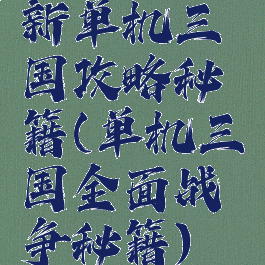 新单机三
国攻略秘
籍(单机三
国全面战
争秘籍)